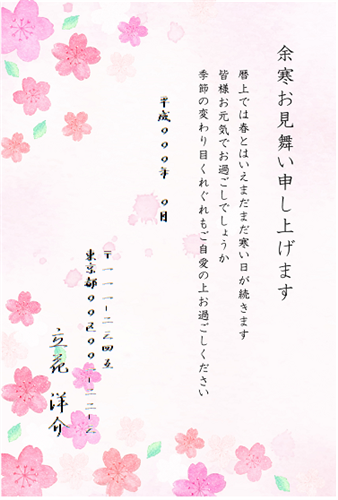 余寒お見舞い申し上げます
暦上では春とはいえまだまだ寒い日が続きます
皆様お元気でお過ごしでしょうか
季節の変わり目くれぐれもご自愛の上お過ごしください
平成〇〇〇年　〇月
〒一一一-二二四五
東京都〇〇区〇〇一-二二-二
立花　洋介